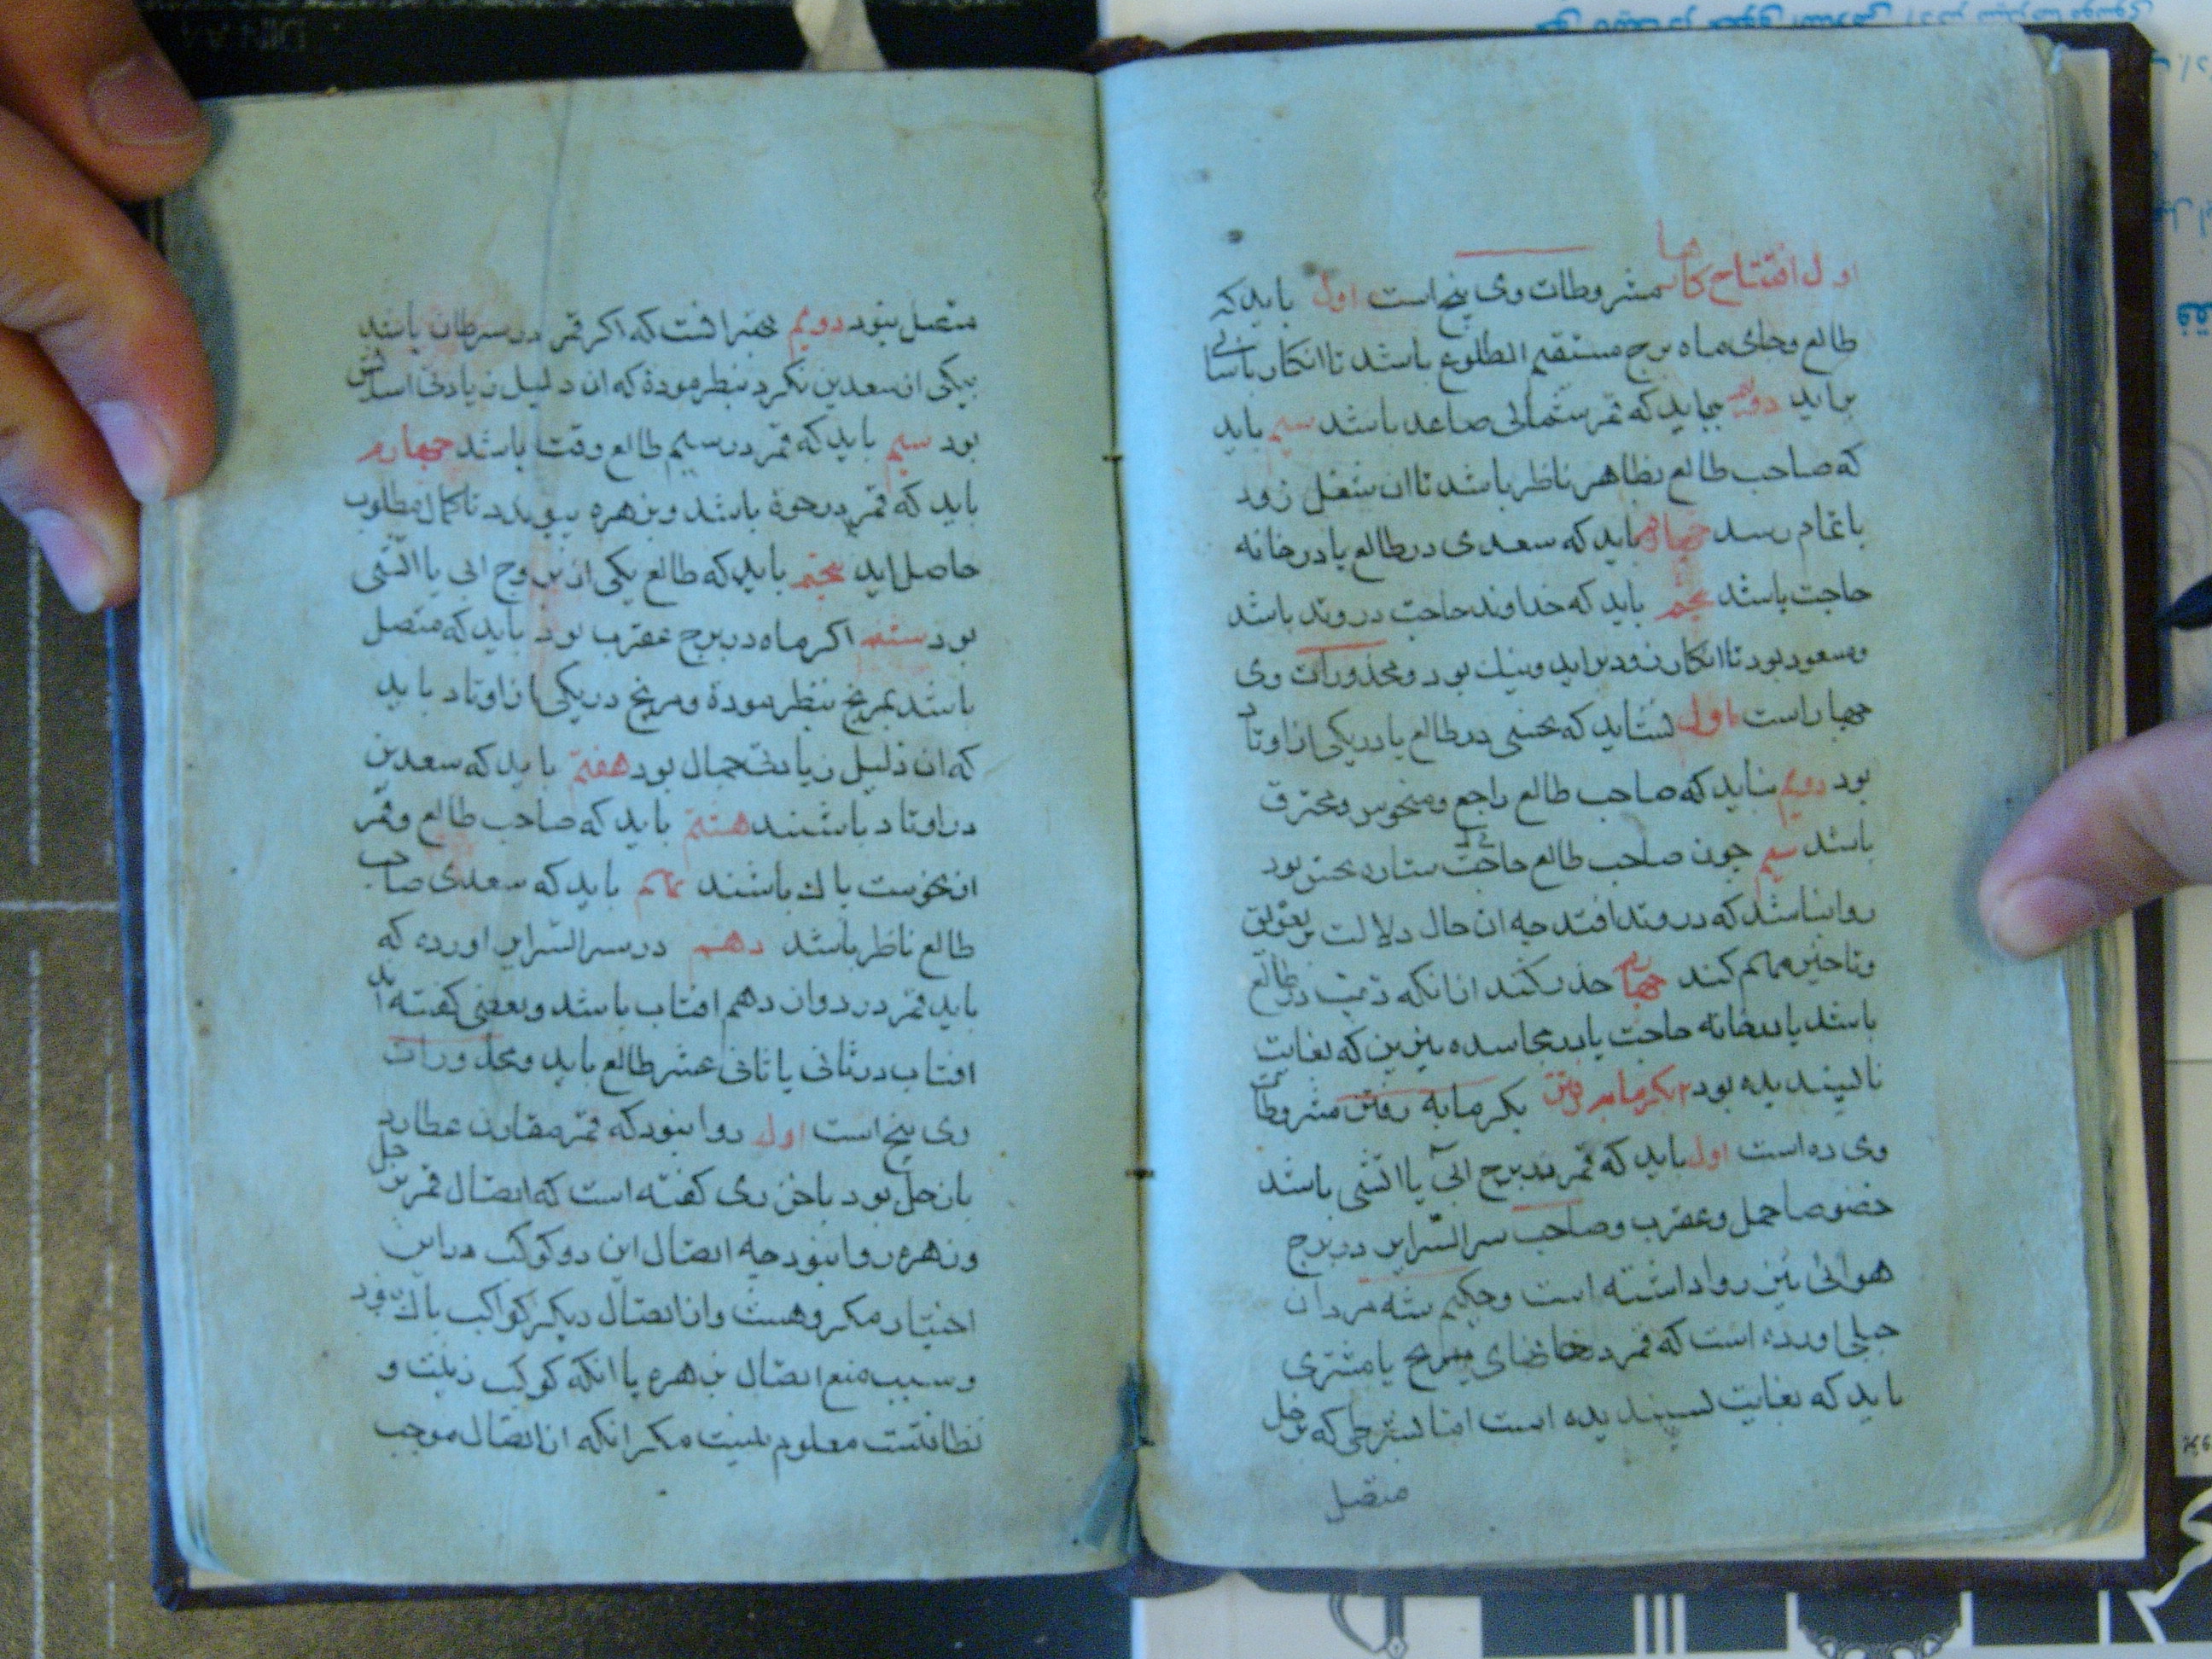 اول افتتاح کارها مشروطات وی پنج است اول باید که
طالع وجای ماه برج مستقیم الطلوع باشد تا انکار باسانی
براید دویم بباید که قمر شمالی صاعد باشد سیم باید
که صاحب طالع بظاهر ناظر باشد تا ان شغل زود
باتمام رسد چهارم باید که سعدی در طالع یا در خانه
حاجت باشد پنجم باید که خداوند حاجت در وتد باشد
ومسعود بود تا انکار زود براید ونیك بود ومحذورات وی
چهار است اول نشاید که نحسی در طالع یا در یکی از اوتاد
بود دویم نشاید که صاحب طالع راجع ومنحوس ومحترق
باشد سیم چون صاحب طالع حاجت ستاره نحس بود
روا نباشد که در وتد افتد چه ان حال دلالت بر تعویق
وتاخیر مهام کند چهارم حذر کند از انکه ذنب در طالع
باشد یا بخانه حاجت یا در نیرین که بغایت
ناپسندیده بود ۲ بکرمابه رفتن بکرمابه رفتن مشروطات
وی ده است اول باید که قمر در برج ابی یا اتشی باشد
خصوصا حمل وعقرب وصاحب سر السرایر در برج
هوائی نیز روا داشته است وحکیم شه مردان
جیلی اورده است که قمر در خانهای مریخ یا مشتری
باید که بغایت پسندیده است اما بشرطی که بزحل
متصل
متصل نبود دویم معتبر انست که اکر قمر در سرطان باشد
بیکی از سعدین نکرد بنظر مودة که ان دلیل زیادتی اسایش
بود سیم باید که قمر در سیم طالع وقت باشد چهارم
باید که قمر در حوة باشد وبزهره پیوندد تا کمال مطلوب
حاصل اید پنجم باید که طالع یکی از بروج ابی یا اتشی
بود ششم اکر ماه در برج عقرب بود باید که متصل
باشد بمریخ بنظر مودة ومریخ در یکی از اوتاد باید
که ان دلیل زیادت جمال بود هفتم باید که سعدین
در اوتاد باشند هشتم باید که صاحب طالع وقمر
از نحوست پاك باشند نهم باید که سعدی صاحب
طالع ناظر باشد دهم در سر السرایر اورده که
باید قمر در دوازدهم افتاب باشد وبعضی کفته اند
افتاب در ثانی یا ثانی عشر طالع باید ومحذورات
وی پنج است اول روا نبود که قمر مقارن عطارد
یا زحل بود باخرزی کفته است که اتصال قمر بزحل
وزهره روا نبود چه اتصال این دو کوکب در این
اختیار مکروهست واز اتصال دیکر کواکب باك نبود
وسبب منع اتصال بزهره با انکه کوکب زینت و
نظافتست معلوم نیست مکر انکه ان اتصال موجب